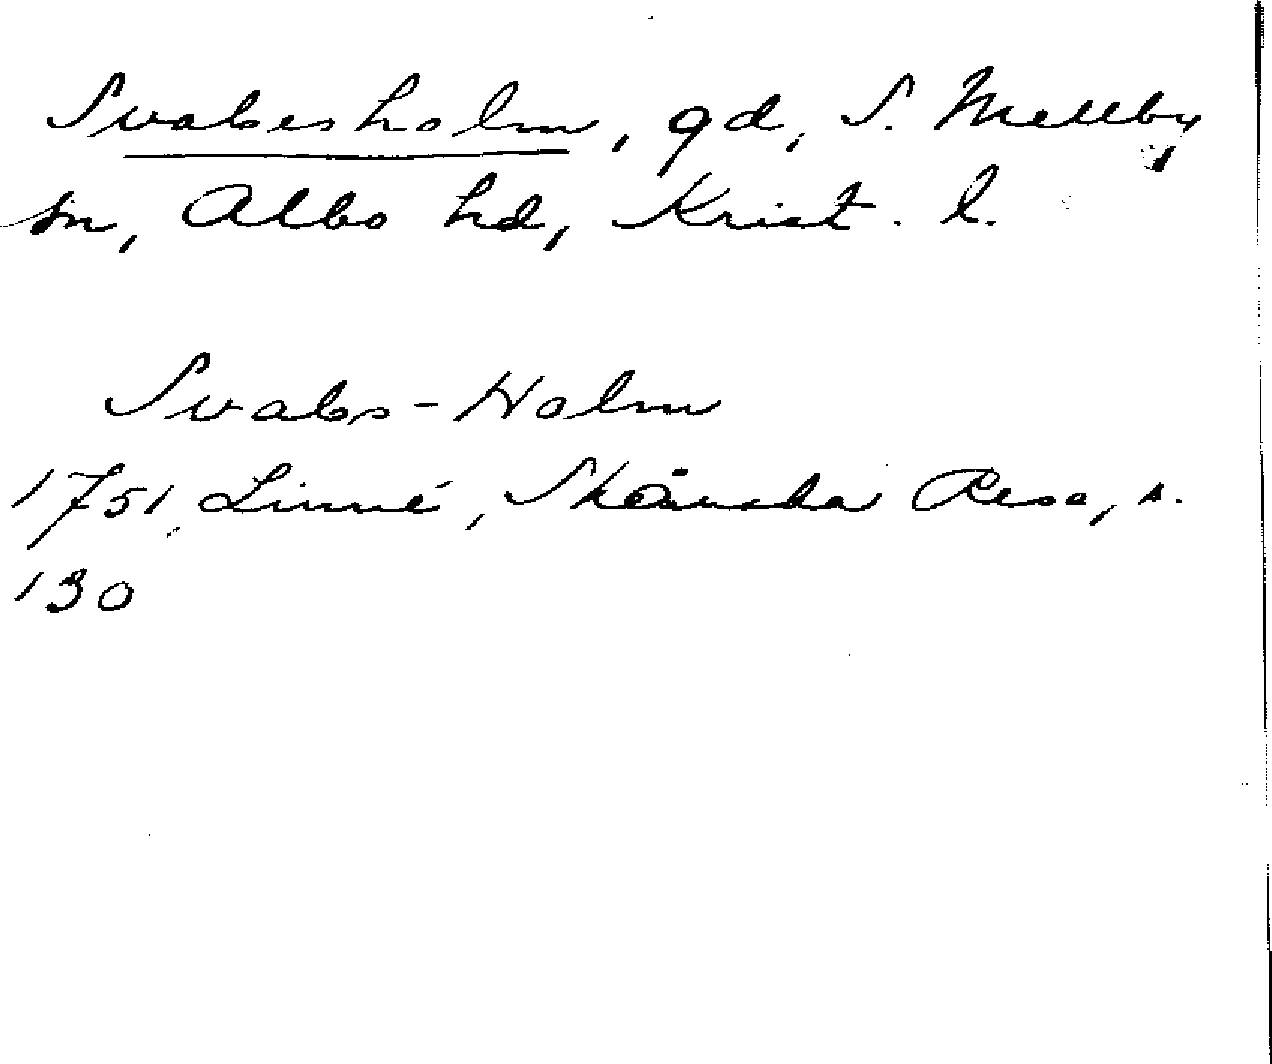 Svabesholm, gd, S. Mellby
sn, Albo hd, Krist. l.
Svabs-Holm
1751, Linné, Skånska Resa, s.
130